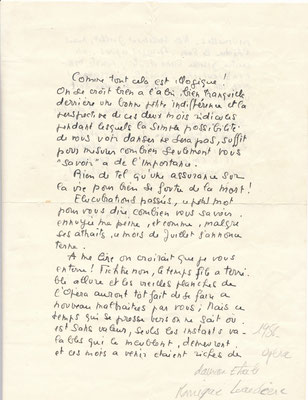 Comme tout cela est illogique !
On se croit bien à l'abri, bien tranquille
derrière une bonne petite indifférence et la
perspective de ces deux mois ridicules
pendant lesquels la simple possibilité
de vous voir danser ne sera pas, suffit
pour mesurer combien seulement vous
"savoir" a de l'importance.
Rien de tel qu'une assurance sur
la vie pour bien se foutre de la mort !
Elucubrations passées, un petit mot
pour vous dire combien vous savoir
ennuyée me peine, et comme, malgré
ses attraits, le mois de Juillet s'annonce
terne.
A me lire on croirait que je vous
enterre ! Fichtre non, le temps file à terri
ble allure et les vieilles planches de
l'Opéra auront tôt fait de se faire à
nouveau maltraitées par vous ; Mais ce
temps qui se presse vers on ne sait où
est sans valeur, seuls les instants va-
lables qui le meublent, demeurent
et ces mois à venir étaient riches de
opéra